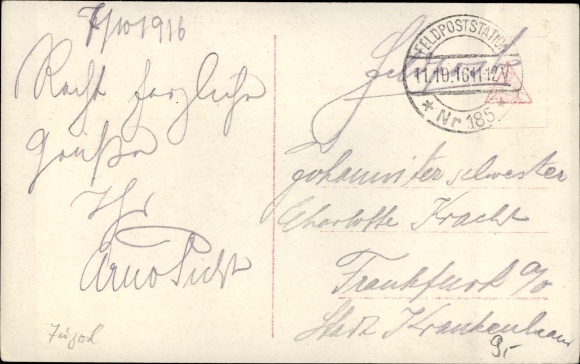 7/10 1916
Recht herzliche
Grüße
Ihr
Arno
FELDPOSTSTATION
11.10.16 11-12 V
* Nr 185.
Johanniterschwester
Charlotte Kracht
Frankfurt a/o
Krankenhaus
9,-